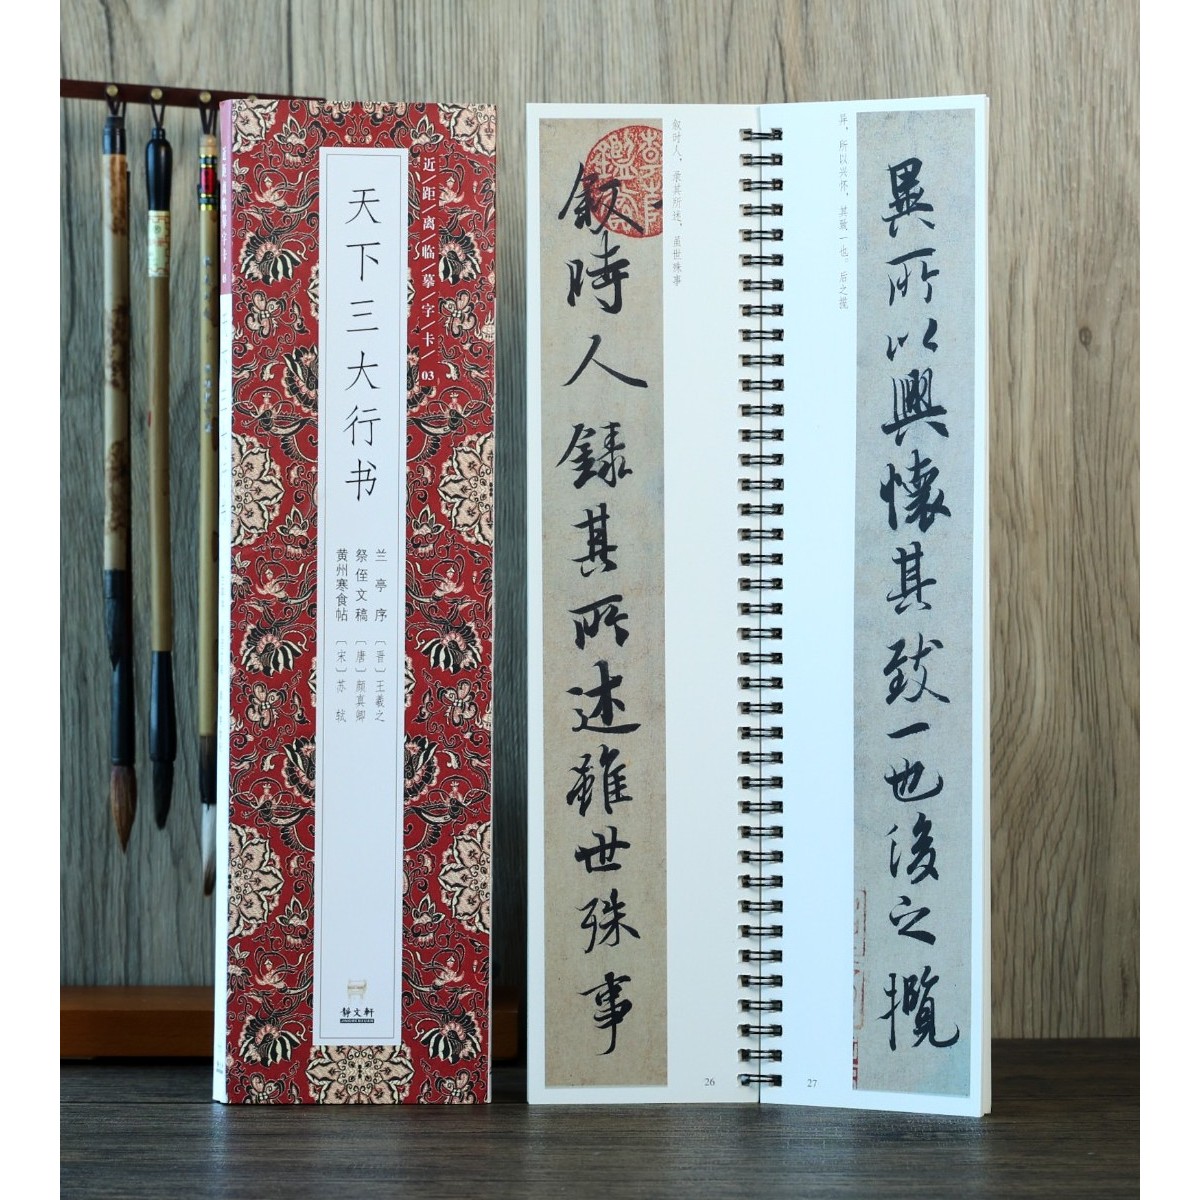 近/距/离/临/摹/字/卡/ 03
天下三大行书
兰亭序 〔晋〕王羲之
祭侄文稿 〔唐〕颜真卿
黄州寒食帖 〔宋〕苏轼
靜文軒
叙时人，录其所述，虽世殊事
叙時人錄其所述雖世殊事
26
异，所以兴怀，其致一也。后之揽
異所以興懷其致一也後之攬
27